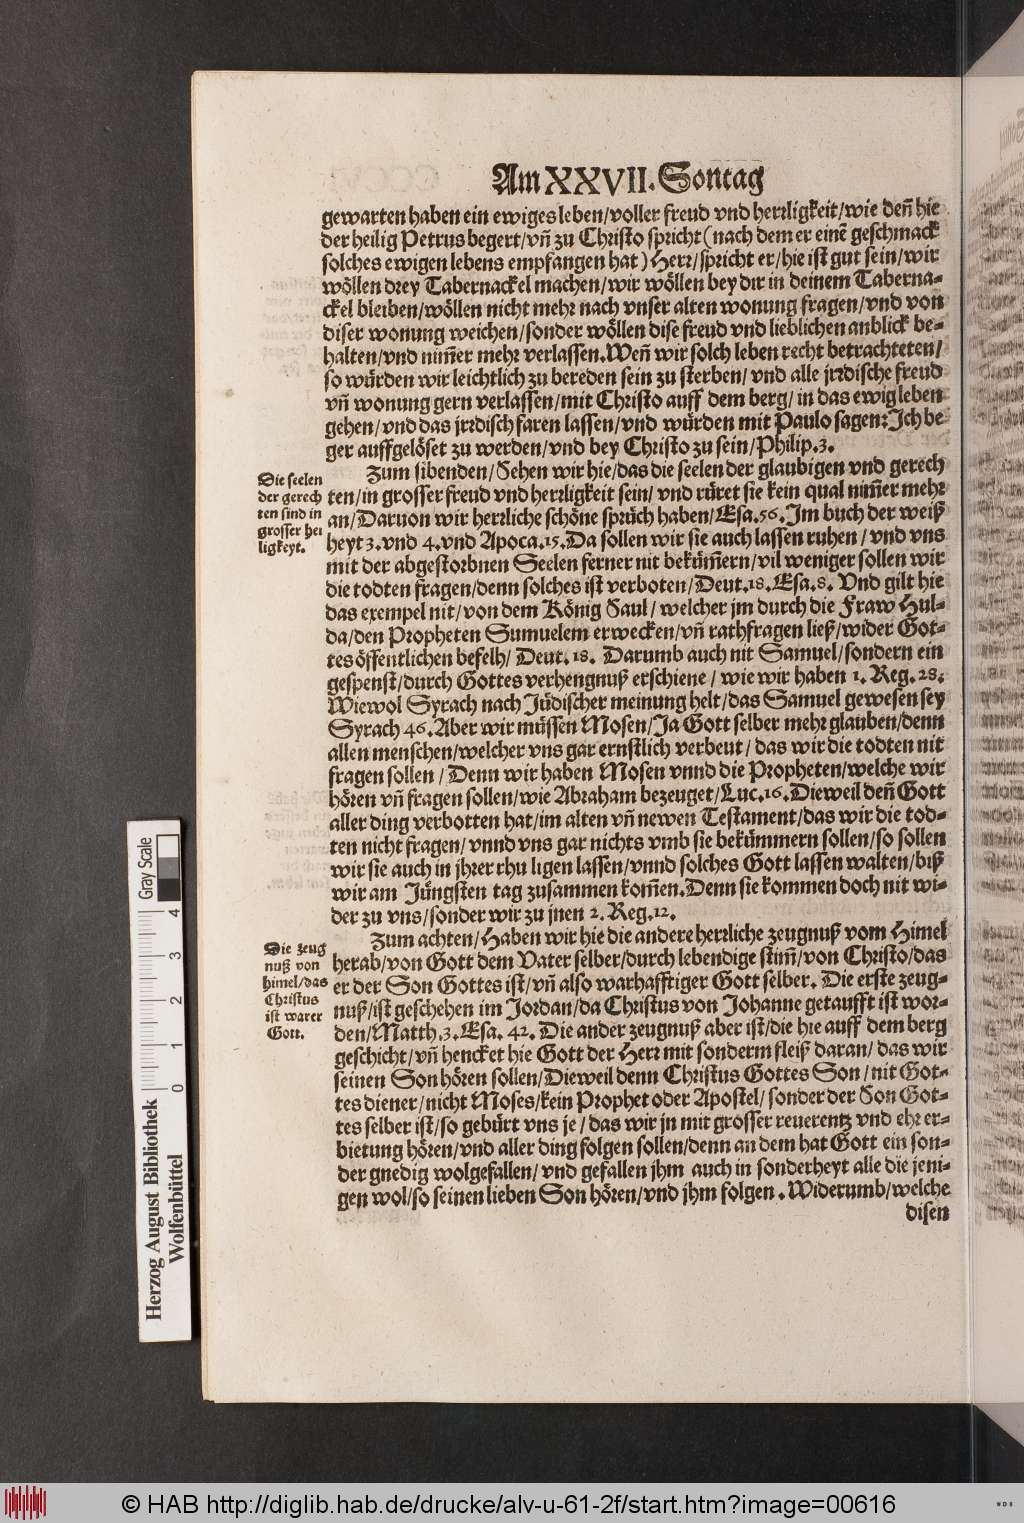 Am XXVII. Sontag
gewarten haben ein ewiges leben/voller freud vnd herrligkeit/wie deñ hie
der heilig Petrus begert/vñ zu Christo spricht (nach dem er einẽ geschmack
solches ewigen lebens empfangen hat) Herr/spricht er/hie ist gut sein/wir
wöllen drey Tabernackel machen/wir wöllen bey dir in deinem Taberna-
ckel bleiben/wöllen nicht mehr nach vnser alten wonung fragen/vnd von
diser wonung weichen/sonder wöllen dise freud vnd lieblichen anblick be-
halten/vnd nim̃er mehr verlassen. Weñ wir solch leben recht betrachteten/
so würden wir leichtlich zu bereden sein zu sterben/vnd alle jrrdische freud
vñ wonung gern verlassen/mit Christo auff dem berg/in das ewig leben
gehen/vnd das jrrdisch faren lassen/vnd würden mit Paulo sagen: Ich be
ger auffgelöset zu werden/vnd bey Christo zu sein/Philip.3.
Die seelen
der gerech
ten sind in
grosser hei
ligkeyt.
Zum sibenden/Sehen wir hie/das die seelen der glaubigen vnd gerech
ten/in grosser freud vnd herrligkeit sein/vnd rüret sie kein qual nim̃er mehr
an/Daruon wir herrliche schöne sprüch haben/Esa.56. Im buch der weiß
heyt 3. vnd 4. vnd Apoca.15. Da sollen wir sie auch lassen ruhen/vnd vns
mit der abgestorbnen Seelen ferner nit bekům̃ern/vil weniger sollen wir
die todten fragen/denn solches ist verboten/Deut.18. Esa.8. Vnd gilt hie
das exempel nit/von dem König Saul/welcher jm durch die Fraw Hul-
da/den Propheten Sumuelem erwecken/vñ rathfragen ließ/wider Got-
tes öffentlichen befelh/Deut.18. Darumb auch nit Samuel/sondern ein
gespenst/durch Gottes verhengnuß erschiene/wie wir haben 1. Reg.28.
Wiewol Syrach nach Jüdischer meinung helt/das Samuel gewesen sey
Syrach 46. Aber wir müssen Mosen/Ja Gott selber mehr glauben/denn
allen menschen/welcher vns gar ernstlich verbeut/das wir die todten nit
fragen sollen/Denn wir haben Mosen vnnd die Propheten/welche wir
hören vñ fragen sollen/wie Abraham bezeuget/Luc.16. Dieweil deñ Gott
aller ding verbotten hat/im alten vñ newen Testament/das wir die tod-
ten nicht fragen/vnnd vns gar nichts vmb sie bekümmern sollen/so sollen
wir sie auch in jhrer rhu ligen lassen/vnnd solches Gott lassen walten/biß
wir am Jüngsten tag zusammen kom̃en. Denn sie kommen doch nit wi-
der zu vns/sonder wir zu jnen 2. Reg.12.
Die zeug
nuß von
himel/das
Christus
ist warer
Gott.
Zum achten/Haben wir hie die andere herrliche zeugnuß vom Himel
herab/von Gott dem Vater selber/durch lebendige stim̃/von Christo/das
er der Son Gottes ist/vñ also warhafftiger Gott selber. Die erste zeug-
nuß/ist geschehen im Jordan/da Christus von Johanne getaufft ist wor-
den/Matth.3. Esa. 42. Die ander zeugnuß aber ist/die hie auff dem berg
geschicht/vñ hencket hie Gott der Herr mit sonderm fleiß daran/das wir
seinen Son hören sollen/Dieweil denn Christus Gottes Son/nit Got-
tes diener/nicht Moses/kein Prophet oder Apostel/sonder der Son Got-
tes selber ist/so gebürt vns je/das wir jn mit grosser reuerentz vnd ehr er-
bietung hören/vnd aller ding folgen sollen/denn an dem hat Gott ein son-
der gnedig wolgefallen/vnd gefallen jhm auch in sonderheyt alle die jeni-
gen wol/so seinen lieben Son hören/vnd jhm folgen. Widerumb/welche
disen
Gray Scale
0 1 2 3 4
Herzog August Bibliothek
Wolfenbüttel
© HAB http://diglib.hab.de/drucke/alv-u-61-2f/start.htm?image=00616